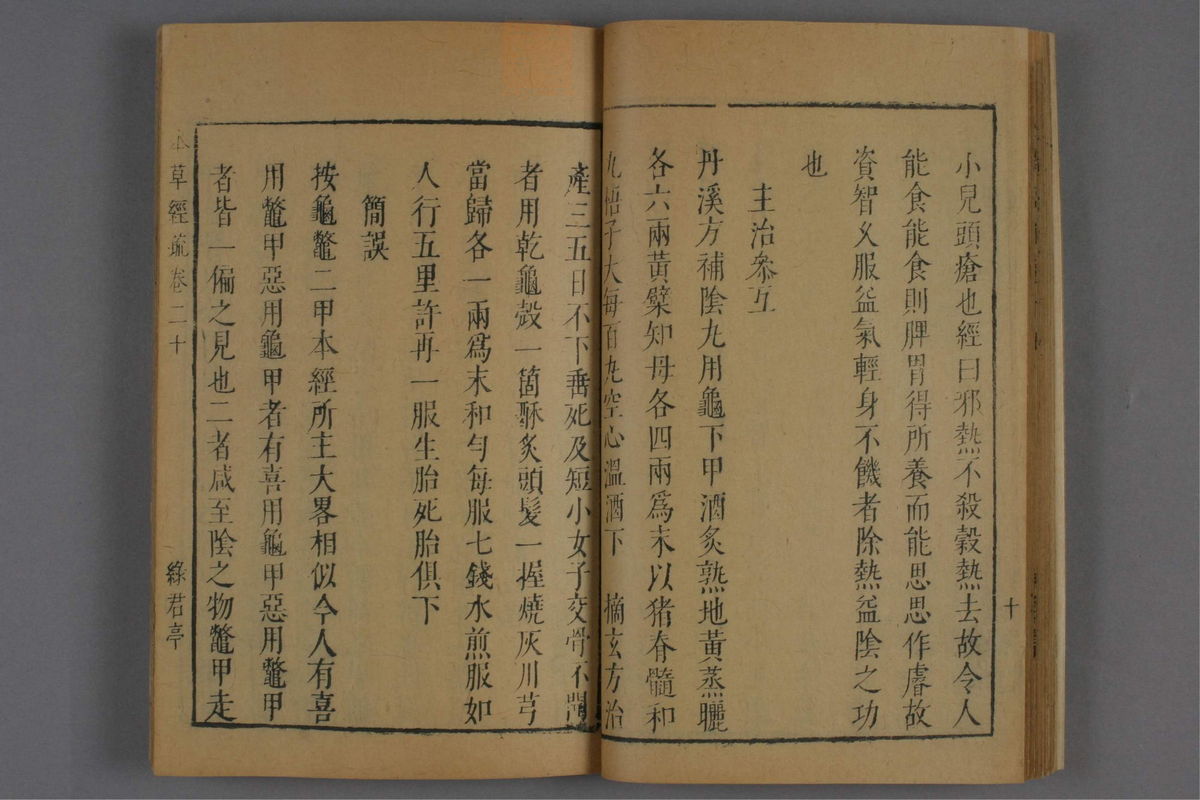 小兒頭瘡也經曰邪熱不殺穀熱去故令人
能食能食則脾胃得所養而能思思作睿故
資智乂服益氣輕身不饑者除熱益陰之功
也
主治叅互
丹溪方補陰丸用龜下甲酒炙熟地黃蒸曬
各六兩黃檗知母各四兩爲末以猪脊髓和
丸梧子大每百丸空心溫酒下　摘玄方治
產三五日不下垂死及短小女子交骨不開
者用乾龜殼一箇酥炙頭髮一握燒灰川芎
當歸各一兩爲末和勻每服七錢水煎服如
人行五里許再一服生胎死胎俱下
簡誤
按龜鱉二甲本經所主大畧相似今人有喜
用鱉甲惡用龜甲者有喜用龜甲惡用鱉甲
者皆一偏之見也二者咸至陰之物鱉甲走
本草經疏卷二十
綠君亭
十